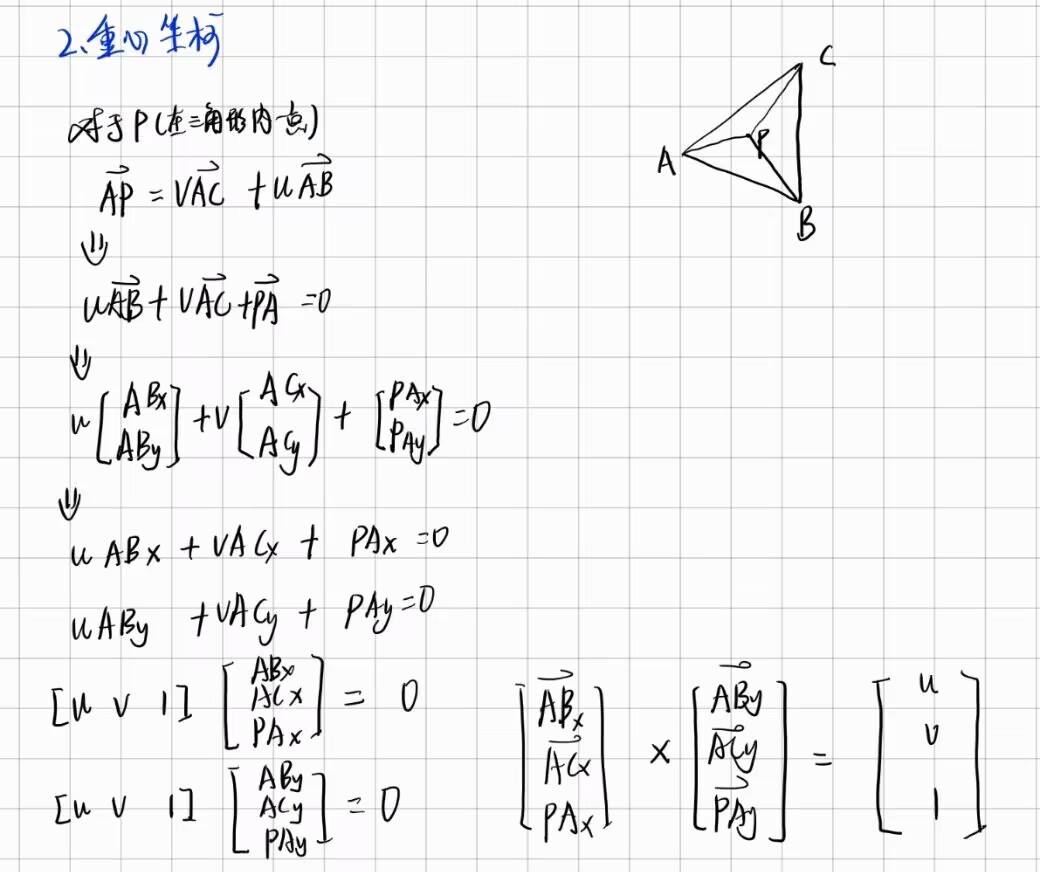 2、重心坐标
对于P(在三角形内一点)
C
A
P
B
AP = VAC + uAB
⇓
uAB + VAC + PA = 0
⇓
u [ABx ABy] + v [ACx ACy] + [PAx PAy] = 0
⇓
u ABx + VACx + PAx = 0
u ABy + VACy + PAy = 0
[u v 1] [ABx ACx PAx] = 0
[u v 1] [ABy ACy PAy] = 0
[ABx ACx PAx] × [ABy ACy PAy] = [u v 1]